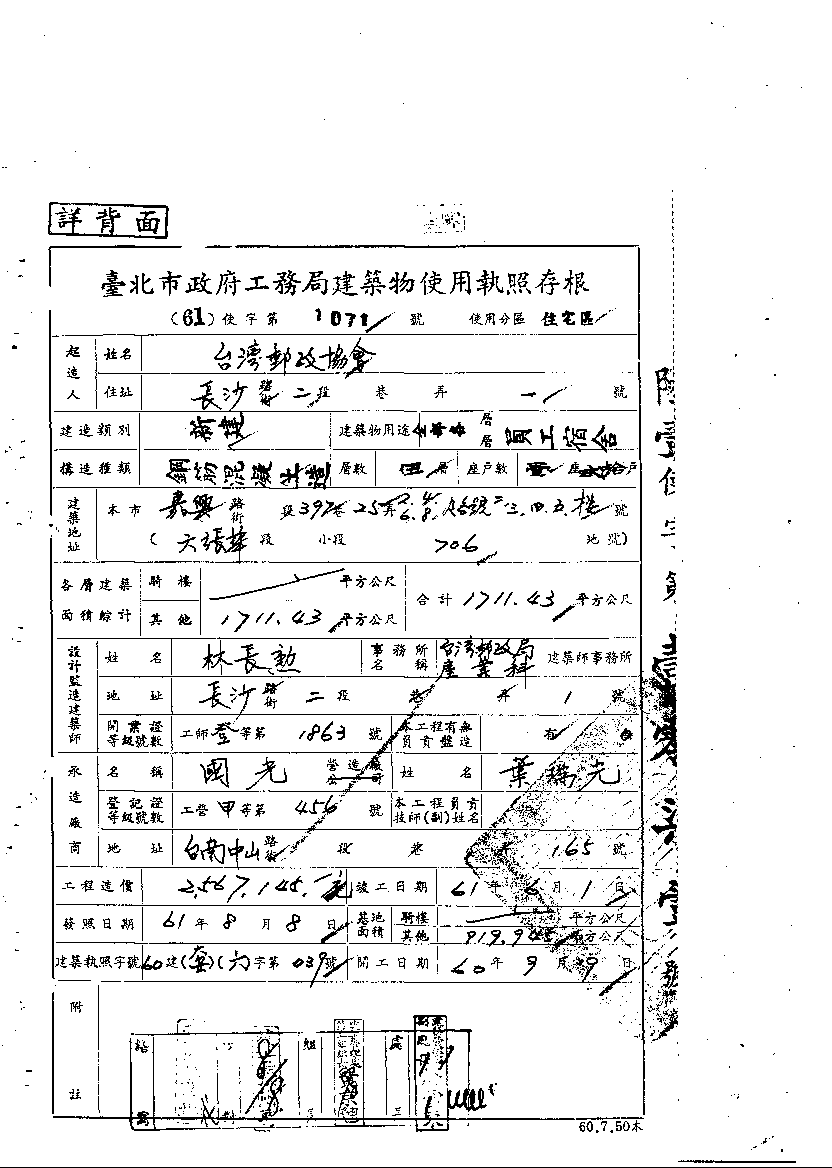 詳背面
臺北市政府工務局建築物使用執照存根
(61)使字第 1071 號 使用分區 住宅區
起造人 姓名 台灣郵政協會
住址 長沙 路街 二 段 巷 弄 一 號
建造類別 新建 建築物用途 層層 員工宿舍
構造種類 鋼筋混凝土造 層數 四 層 座戶數 座 戶
建築地址 本市 嘉興 路街 段 392 巷 25 弄 號
(六張犂 段 小段 706 地號)
各層建築面積綜計 騎樓 平方公尺 合計 1711.43 平方公尺
其他 1711.43 平方公尺
設計監造建築師 姓名 林長勲 事務所名稱 台灣郵政局產業科 建築師事務所
地址 長沙 路街 二 段 巷 弄 1 號
開業證等級號數 工師 登 等第 1863 號 本工程有無負責監造 有
承造廠商 名稱 國光 營造廠公司 姓名 葉
登記證等級號數 工營 甲 等第 456 號 本工程負責技師(副)姓名
地址 台南中山 路街 段 巷 弄 165 號
工程造價 2,567,145.-元 竣工日期 61 年 6 月 1 日
發照日期 61 年 8 月 8 日 基地面積 騎樓 平方公尺
其他 919.945 平方公尺
建築執照字號 60 建(套)(六)字第 039 號 開工日期 60 年 9 月 日
附註
組
處
60.7.50本